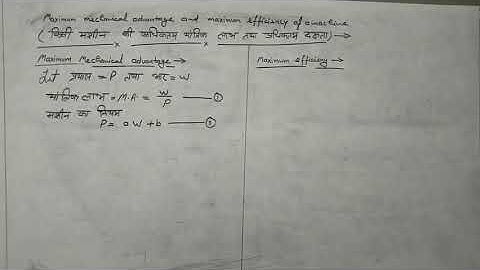 Maximum mechanical advantage and maximum efficiency of a machine
( किसी मशीन की अधिकतम यांत्रिक लाभ तथा अधिकतम दक्षता) →
Maximum Mechanical advantage →
Let प्रयास = P तथा भार = W
यांत्रिक लाभ = M.A = W/P — ①
मशीन का नियम
P = aW + b — ②
Maximum efficiency →